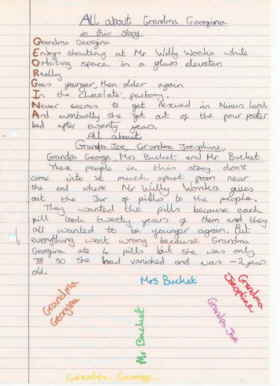 All about Grandma Georgina
in this story.
Grandma Georgina
Enjoys shouting at Mr Willy Wonka while
Orbiting space in a glass elevator
Really
Goes younger, then older again
In the Chocolate factory.
Never seems to get in Minus land
And wouldnt she got out of the four poster
bed after twenty years.
All about
Grandpa Joe, Grandma Josephine,
Grandpa George, Mrs Bucket and Mr Bucket
These people in this story don't
come into it much apart from near
the end where Mr Willy Wonka gives
out the Jar of pills to the people.
They wanted the pills because each
pill took twenty years of them and they
all wanted to be younger again. But
everything went wrong because Grandma
Georgina ate 4 pills but she was only
78 so she had vanished and was -2 years
old.
Grandma
Georgina
Mrs Bucket
Grandma
Josephine
Grandpa Joe
Mr Bucket
Grandpa George